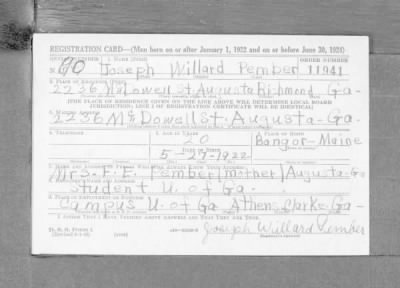 REGISTRATION CARD—(Men born on or after January 1, 1922 and on or before June 30, 1924)
SERIAL NUMBER 1. NAME (Print) ORDER NUMBER
N 90 Joseph Willard Pember 11941
2. PLACE OF RESIDENCE (Print)
2236 McDowell St. Augusta Richmond Ga-
[THE PLACE OF RESIDENCE GIVEN ON THE LINE ABOVE WILL DETERMINE LOCAL BOARD
JURISDICTION; LINE 2 OF REGISTRATION CERTIFICATE WILL BE IDENTICAL]
3. MAILING ADDRESS
2236 McDowell St. Augusta-Ga-
4. TELEPHONE 5. AGE IN YEARS 6. PLACE OF BIRTH
20 Bangor-
DATE OF BIRTH Maine
5-27-1922
7. NAME AND ADDRESS OF PERSON WHO WILL ALWAYS KNOW YOUR ADDRESS
Mrs. F. E. Pember (mother) Augusta-Ga
8. EMPLOYER'S NAME AND ADDRESS
Student U. of Ga-
9. PLACE OF EMPLOYMENT OR BUSINESS
Campus U. of Ga Athens, Clarke-Ga-
I AFFIRM THAT I HAVE VERIFIED ABOVE ANSWERS AND THAT THEY ARE TRUE.
Joseph Willard Pember